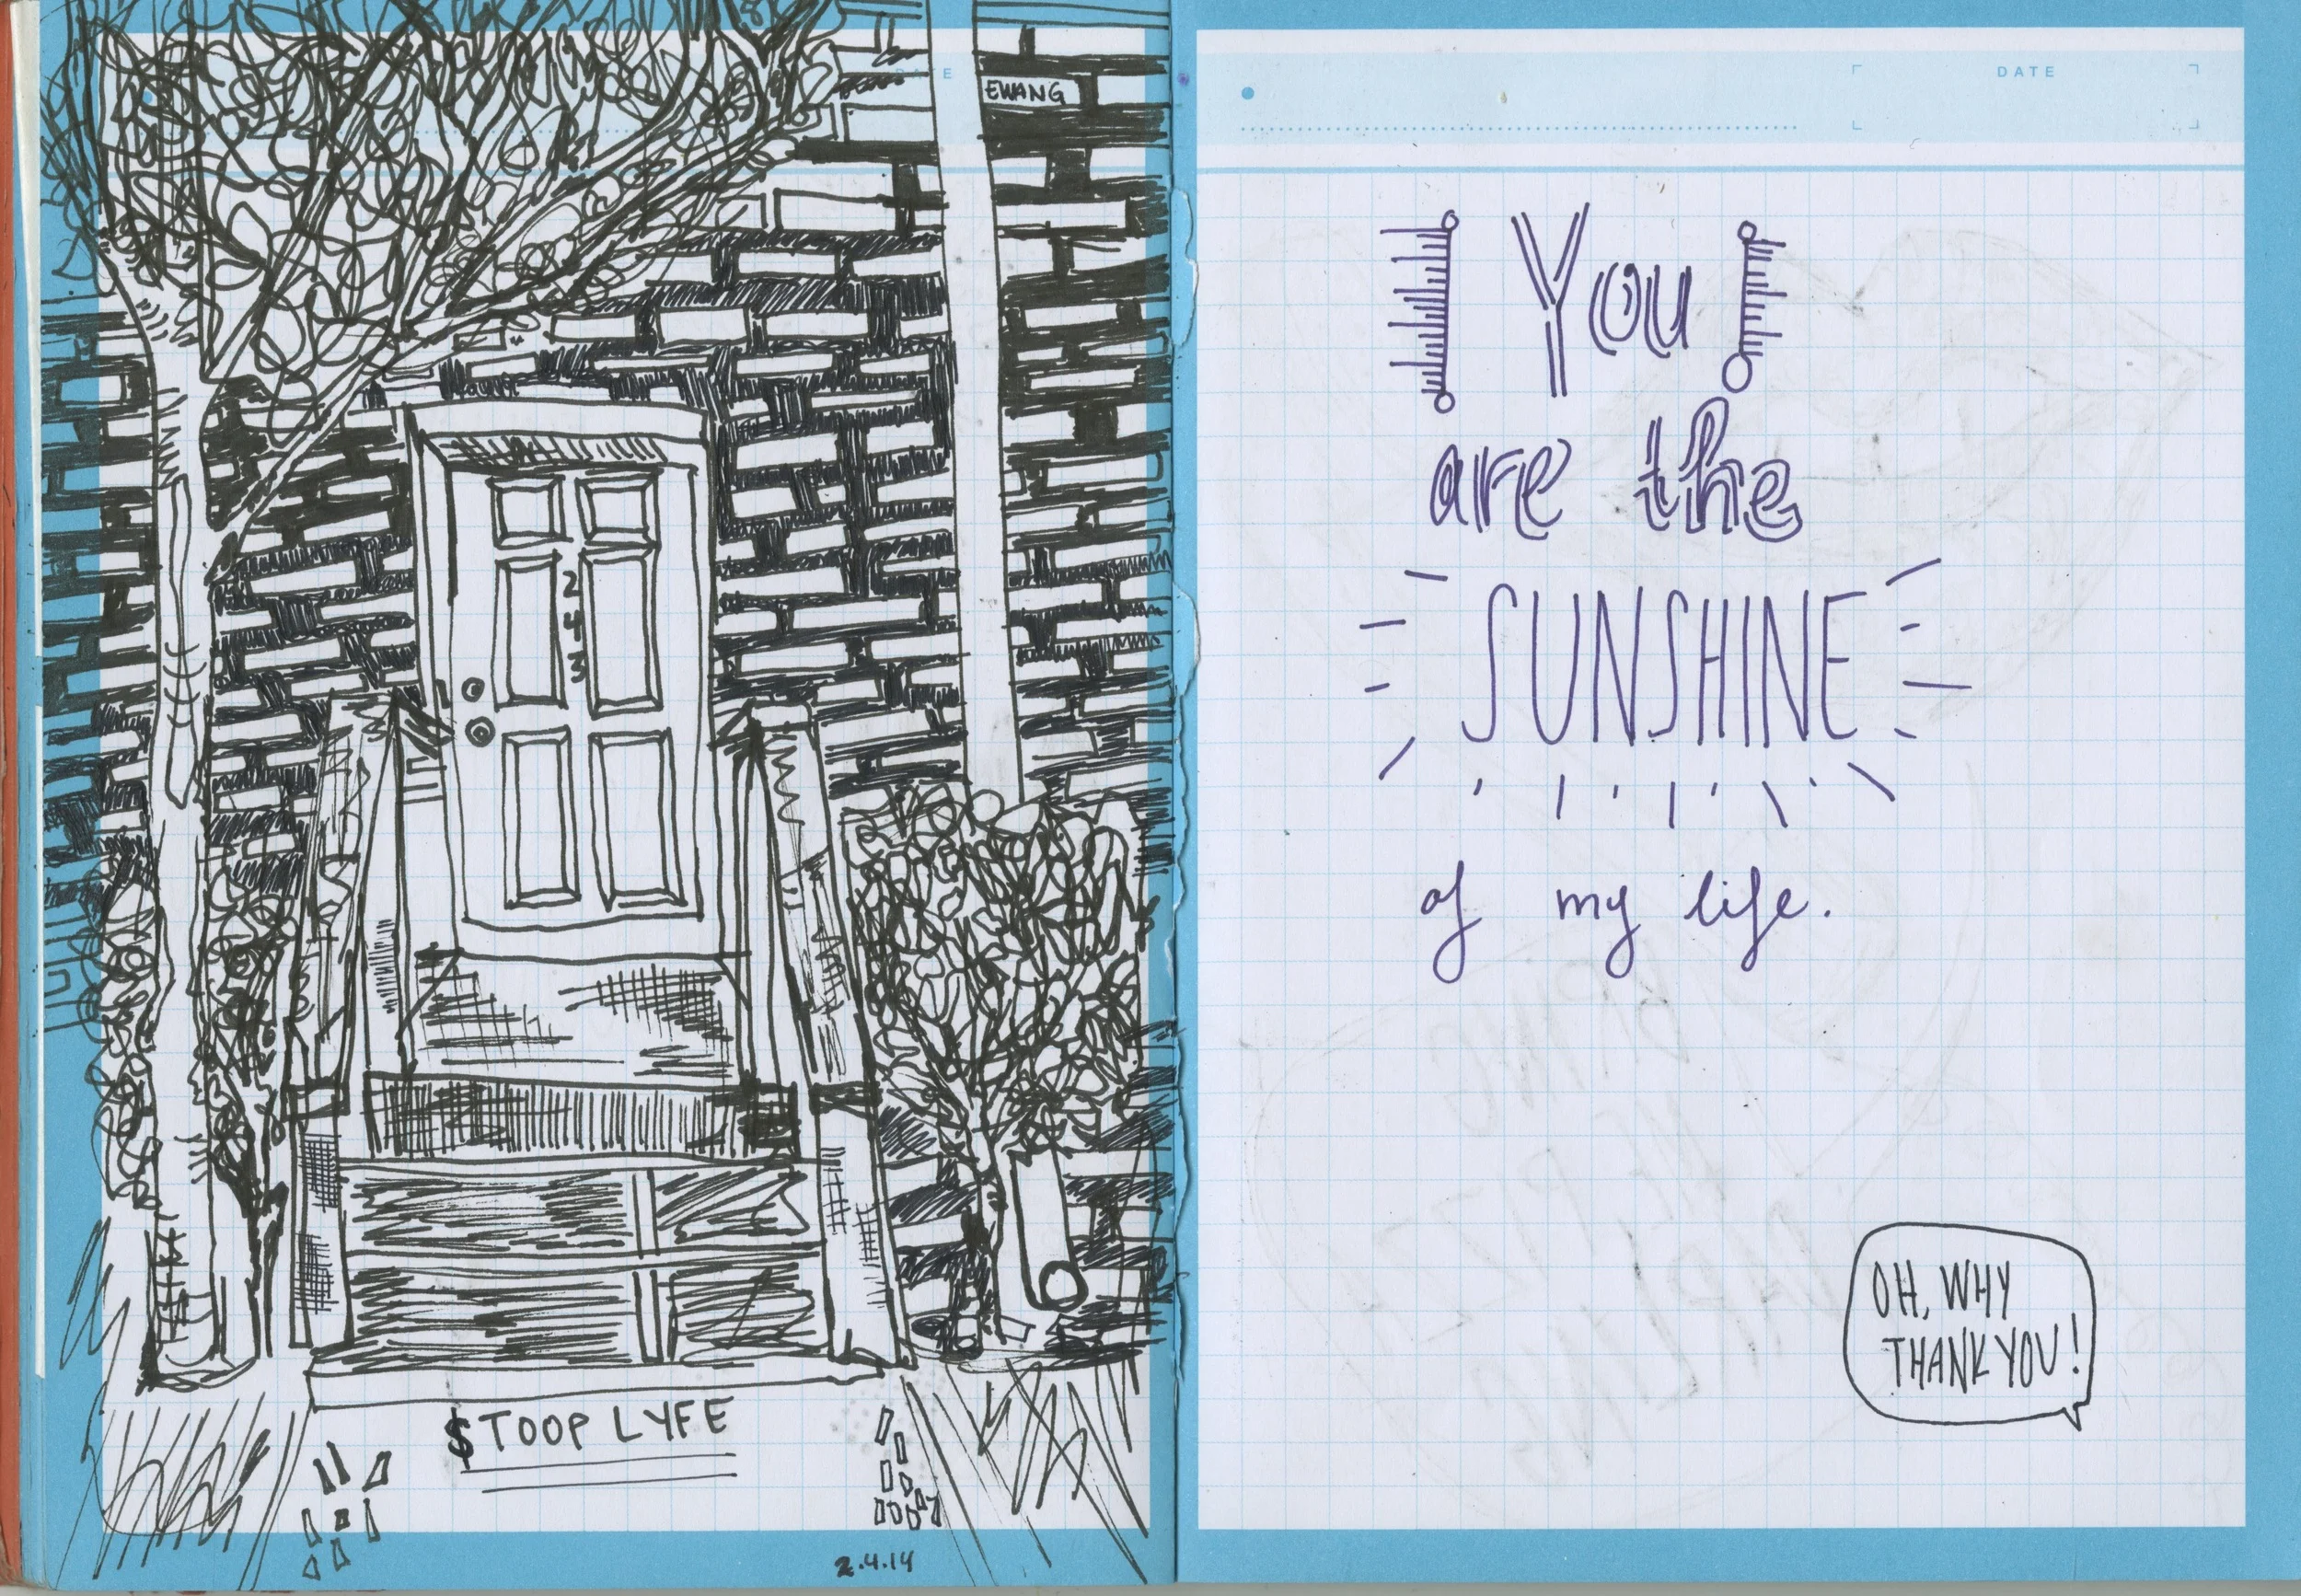 DATE
EWANG
2
4
3
$TOOP LYFE
2.4.14
DATE
You
are the
SUNSHINE
of my life.
OH, WHY
THANK YOU!